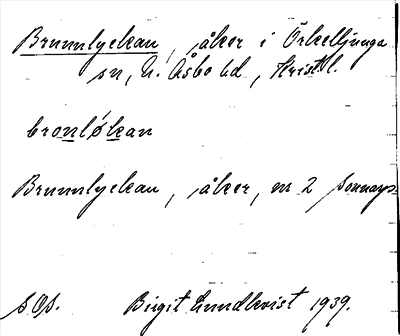 Brunnlyckan, åker i Örkelljunga
sn, N. Åsbo hd, Krist. l.
bronløkan
Brunnlyckan, åker, nr 2
sOs. Birgit Lundkvist 1939.